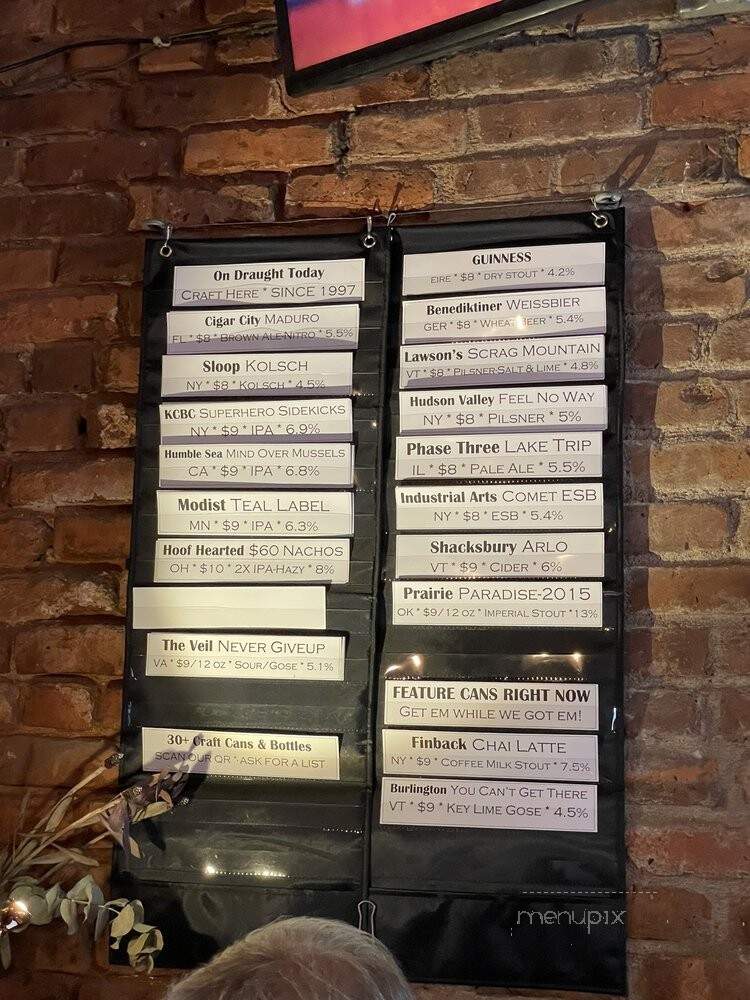 On Draught Today
CRAFT HERE * SINCE 1997
Cigar City MADURO
FL * $8 * BROWN ALE-NITRO * 5.5%
Sloop KOLSCH
NY * $8 * KOLSCH * 4.5%
KCBC SUPERHERO SIDEKICKS
NY * $9 * IPA * 6.9%
Humble Sea MIND OVER MUSSELS
CA * $9 * IPA * 6.8%
Modist TEAL LABEL
MN * $9 * IPA * 6.3%
Hoof Hearted $60 NACHOS
OH * $10 * 2X IPA-HAZY * 8%
The Veil NEVER GIVEUP
VA * $9/12 OZ * SOUR/GOSE * 5.1%
30+ Craft Cans & Bottles
SCAN OUR QR * ASK FOR A LIST
GUINNESS
EIRE * $8 * DRY STOUT * 4.2%
Benediktiner WEISSBIER
GER * $8 * WHEAT BEER * 5.4%
Lawson's SCRAG MOUNTAIN
VT * $8 * PILSNER SALT & LIME * 4.8%
Hudson Valley FEEL NO WAY
NY * $8 * PILSNER * 5%
Phase Three LAKE TRIP
IL * $8 * PALE ALE * 5.5%
Industrial Arts COMET ESB
NY * $8 * ESB * 5.4%
Shacksbury ARLO
VT * $9 * CIDER * 6%
Prairie PARADISE-2015
OK * $9/12 OZ * IMPERIAL STOUT *13%
FEATURE CANS RIGHT NOW
GET EM WHILE WE GOT EM!
Finback CHAI LATTE
NY * $9 * COFFEE MILK STOUT * 7.5%
Burlington YOU CAN'T GET THERE
VT * $9 * KEY LIME GOSE * 4.5%
menupix